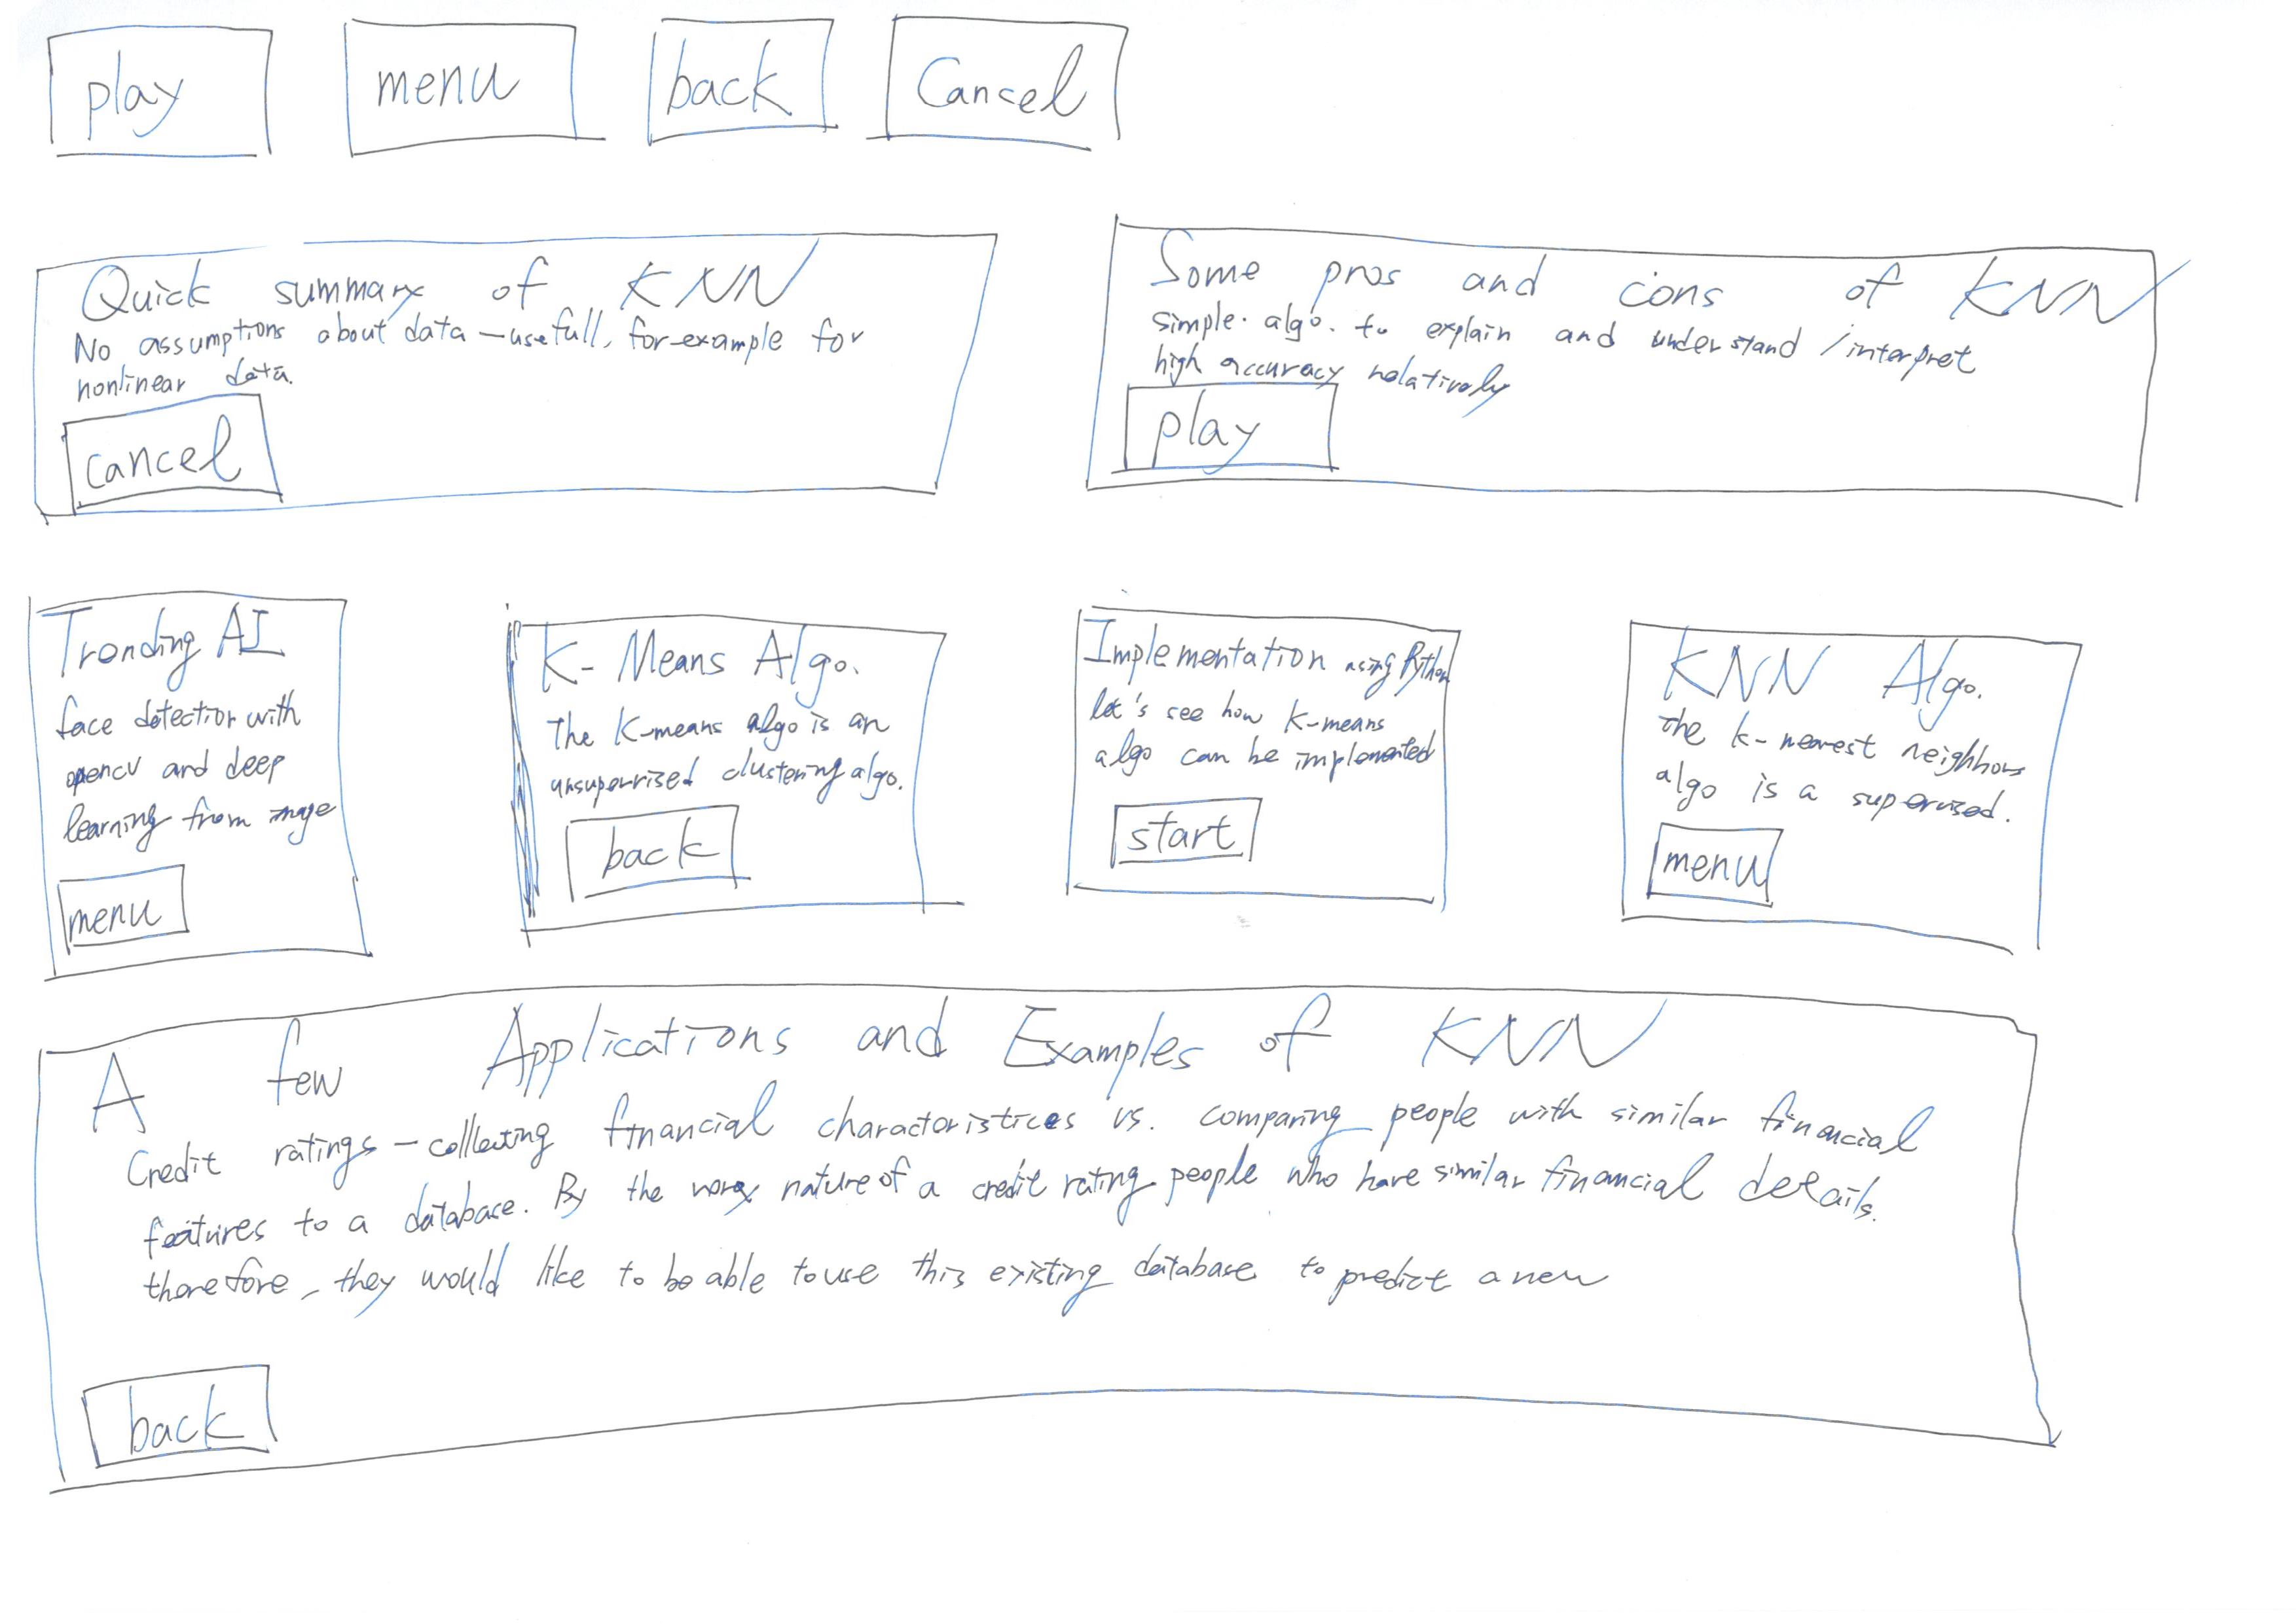 play
menu
back
Cancel
Quick summary of KNN
No assumptions about data - usefull, for example for
nonlinear data.
cancel
Some pros and cons of KNN
simple. algo. to explain and understand / interpret
high accuracy relatively
play
Trending AI
face detection with
opencv and deep
learning from image
menu
K- Means Algo.
The K-means algo is an
unsupervised clustering algo.
back
Implementation using Python
let's see how K-means
algo can be implemented
start
KNN Algo.
The k-nearest neighbors
algo is a supervised.
menu
A few Applications and Examples of KNN
Credit ratings - collecting financial characteristices vs. comparing people with similar financial
features to a database. By the very nature of a credit rating people who have similar financial details.
therefore, they would like to be able to use this existing database to predict a new
back